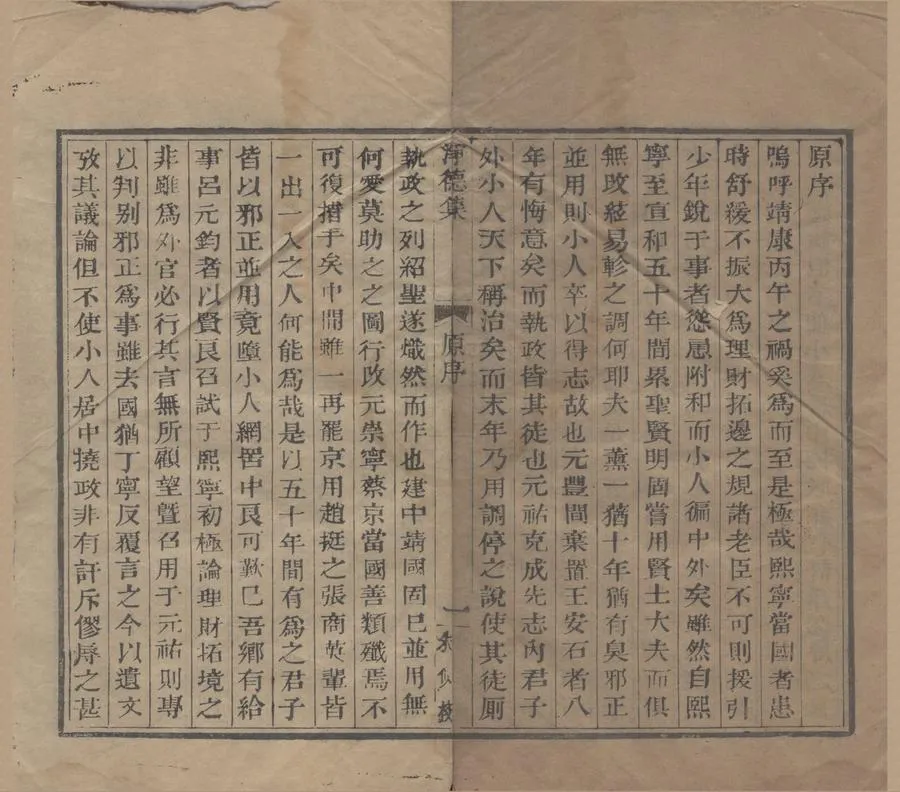 原序
嗚呼靖康丙午之禍奚爲而至是極哉熙寧當國者患
時舒緩不振大爲理財拓邊之規諸老臣不可則援引
少年銳于事者慫恿附和而小人徧中外矣雖然自熙
寧至宣和五十年間累聖賢明固嘗用賢士大夫而俱
無改絃易軫之調何耶夫一薰一猶十年猶有臭邪正
並用則小人卒以得志故也元豐間棄置王安石者八
年有悔意矣而執政皆其徒也元祐克成先志內君子
外小人天下稱治矣而末年乃用調停之說使其徒厠
淨德集
原序
一
執政之列紹聖遂熾然而作也建中靖國固已並用無
何愛莫助之之圖行改元崇寧蔡京當國善類殲焉不
可復措手矣中間雖一再罷京用趙挺之張商英輩皆
一出一入之人何能爲哉是以五十年間有爲之君子
皆以邪正並用竟墮小人網罟中良可歎已吾鄉有給
事呂元鈞者以賢良召試于熙寧初極論理財拓境之
非雖爲外官必行其言無所顧望曁召用于元祐則專
以判别邪正爲事雖去國猶丁寧反覆言之今以遺文
攷其議論但不使小人居中撓政非有訐斥僇辱之甚